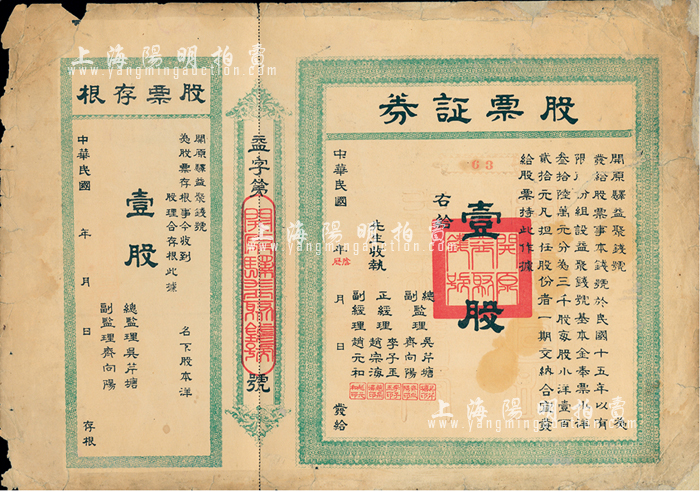 上海陽明拍賣
www.yangmingauction.com
股票証券
開原驛益聚錢號 為
發給股票事本錢號於民國十五年 有
限 份組設益聚錢號基本金奉票 洋
叁拾陸萬元分為三千股每股小洋壹百
貳拾元凡担任股份者一期交納合 發
給股票持此作據
63
壹股
右給
先生收執
總監理吳芹塘
副監理齊向陽
正經理李子玉
副經理趙宗海
副經理趙元和
中華民國 年 月 日 發給
益字第 號
股票存根
開原驛益聚錢號
為股票存根事今收到
名下股本洋
股理合存根此據
壹股
總監理吳芹塘
副監理齊向陽
中華民國 年 月 日 存根
上海陽明拍賣
www.yangmingauction.com
上海陽明拍賣
www.yangmingauction.com